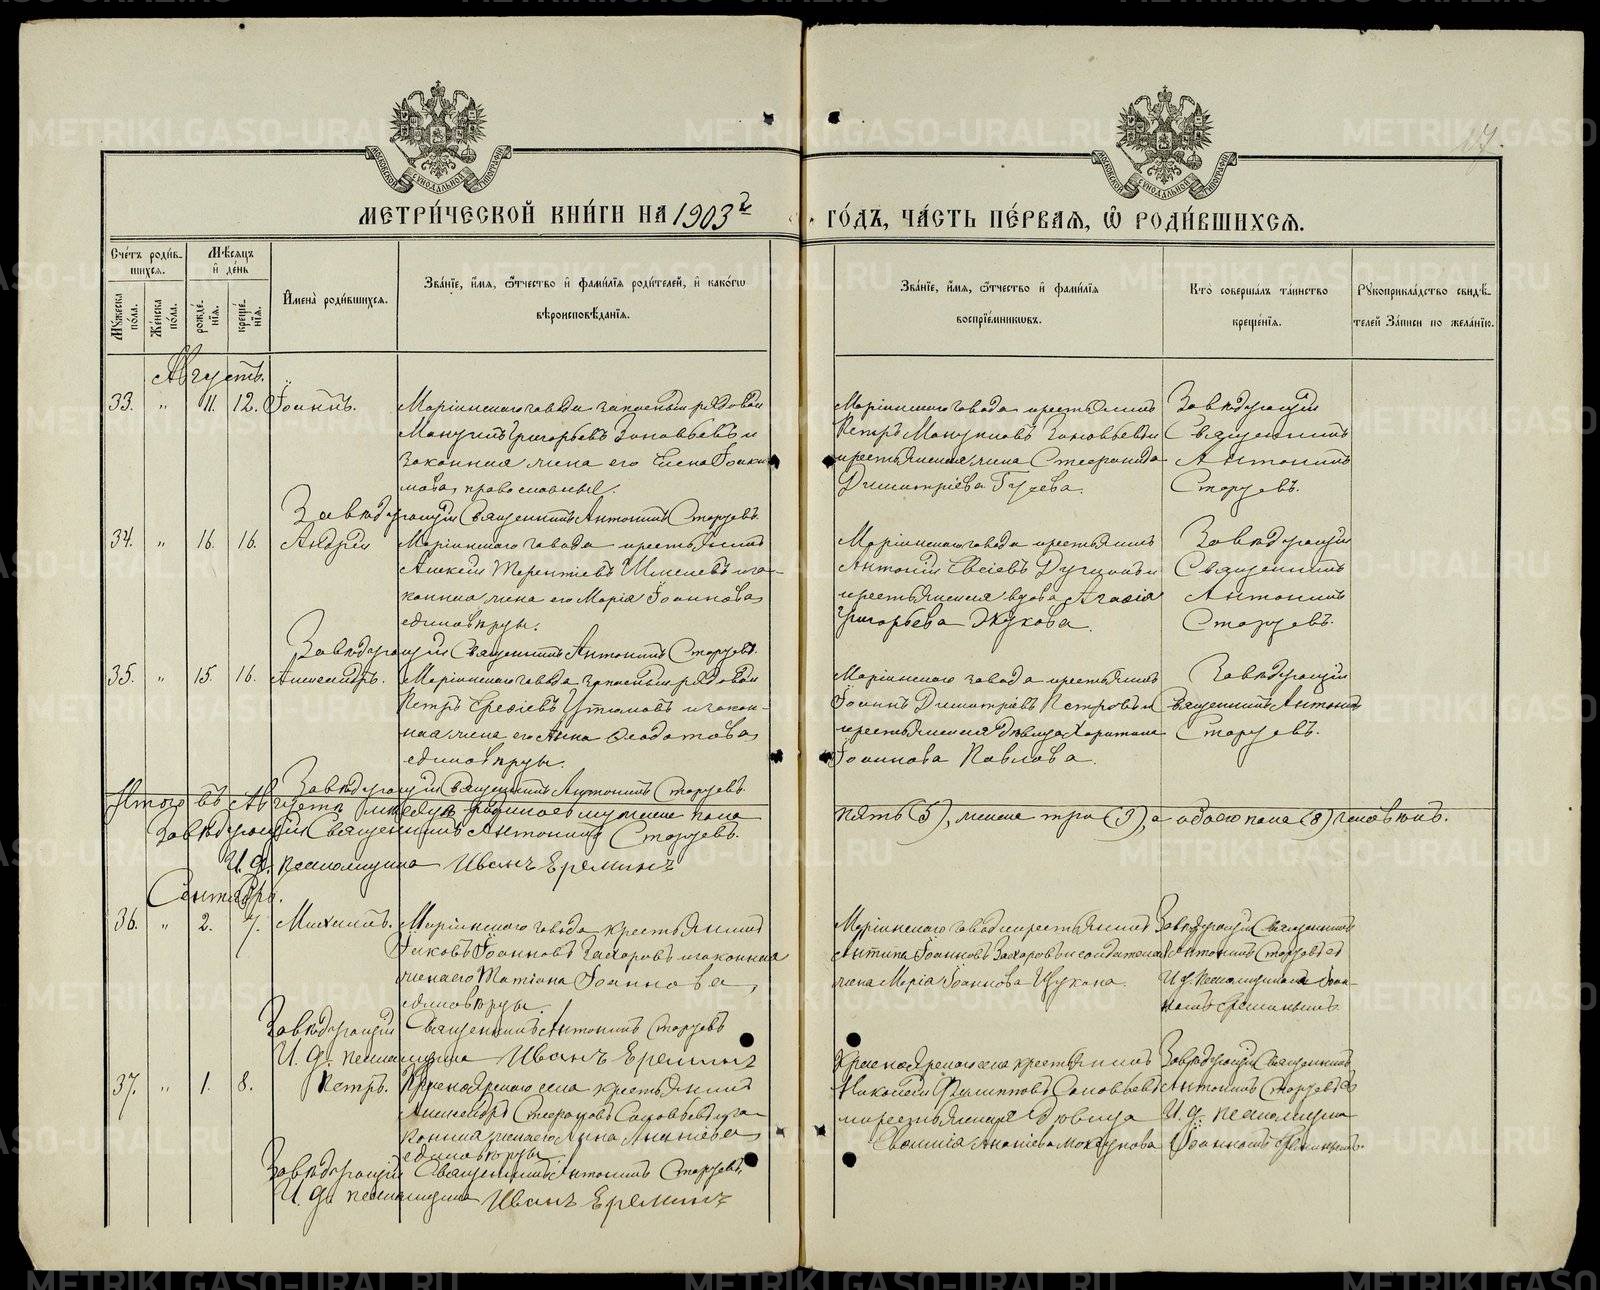 МЕТРИ́ЧЕСКОЙ КНИ́ГИ НА 1903й
ГО́ДЪ, ЧА́СТЬ ПЕ́РВАЯ, Ѽ РОДИ́ВШИХСЯ.
17.
Счетъ роди́вшихся.
Мꙋжеска по́ла.
Же́нска по́ла.
Мѣсяцъ и де́нь
рожде́нїя.
креще́нїя.
Имена̀ роди́вшихся.
Зва́нїе, и́мя, ѻ҆́тчество и҆ фами́лїя роди́телей, и҆ како́гѡ
вѣроисповѣ́данїя.
Зва́нїе, и́мя, ѻ҆́тчество и҆ фами́лїя
воспрїе́мниковъ.
Кто̀ соверша́лъ та́инство
креще́нїя.
Рꙋкоприкла́дство свидѣ́-
телей за́писи по жела́нїю.
Августъ.
33. " 11. 12. Іоаннъ.
Маріинскаго завода запасный рядовой
Григорьевъ Зиновьевъ и
законная жена его Елена Іоаки-
мова, православные.
Маріинскаго завода крестьянинъ
Петръ Зиновьевъ и
крестьянская жена Стефанида
Димитріева Гусева.
Завѣдующій
Священникъ
Антонинъ
Сторожевъ.
Завѣдующій Священникъ Антонинъ Сторожевъ.
34. " 16. 16. Андрей
Маріинскаго завода крестьянинъ
Алексѣй Терентіевъ Шмелевъ и за-
конная жена его Марія Іоаннова,
единовѣрцы.
Маріинскаго завода крестьянинъ
Антоній Евсіевъ и
крестьянская вдова Агафія
Григорьева Жукова.
Завѣдующій
Священникъ
Антонинъ
Сторожевъ.
Завѣдующій Священникъ Антонинъ Сторожевъ.
35. " 15. 16. Александръ.
Маріинскаго завода запасный рядовой
Петръ и закон-
ная жена его Анна Ѳеодотова,
единовѣрцы.
Маріинскаго завода крестьянинъ
Іоаннъ Димитріевъ Петровъ и
крестьянская дѣвица Харитина
Іоаннова Павлова.
Завѣдующій
Священникъ Антонинъ
Сторожевъ.
Завѣдующій Священникъ Антонинъ Сторожевъ.
Итого въ Августѣ мѣсяцѣ родилось мужеска пола
пять (5), женска три (3), а обоего пола (8) человѣкъ.
Завѣдующій Священникъ Антонинъ Сторожевъ.
И. д. псаломщика Иванъ Ереминъ
Сентябрь.
36. " 2. 7. Михаилъ.
Маріинскаго завода крестьянинъ
Іаковъ Іоанновъ Захаровъ и законная
жена его Татіана Іоаннова,
единовѣрцы.
Маріинскаго завода крестьянинъ
Антипа Іоанновъ Захаровъ и солдатская
жена Марія Іоаннова
Завѣдующій Священникъ
Антонинъ Сторожевъ съ
И. д. псаломщика Іоан-
номъ Ереминымъ.
Завѣдующій Священникъ Антонинъ Сторожевъ
И. д. псаломщика Иванъ Ереминъ
37. " 1. 8. Петръ.
Красноярскаго села крестьянинъ
Александръ Стефановъ Соловьевъ и за-
конная жена его Анна Ананіева,
единовѣрцы.
Красноярскаго села крестьянинъ
Николай Филипповъ Соловьевъ
и крестьянская дѣвица
Ананіева
Завѣдующій Священникъ
Антонинъ Сторожевъ съ
И. д. псаломщика
Іоанномъ Ереминымъ.
Завѣдующій Священникъ Антонинъ Сторожевъ.
И. д. псаломщика Иванъ Ереминъ
METRIKI.GASO-URAL.RU